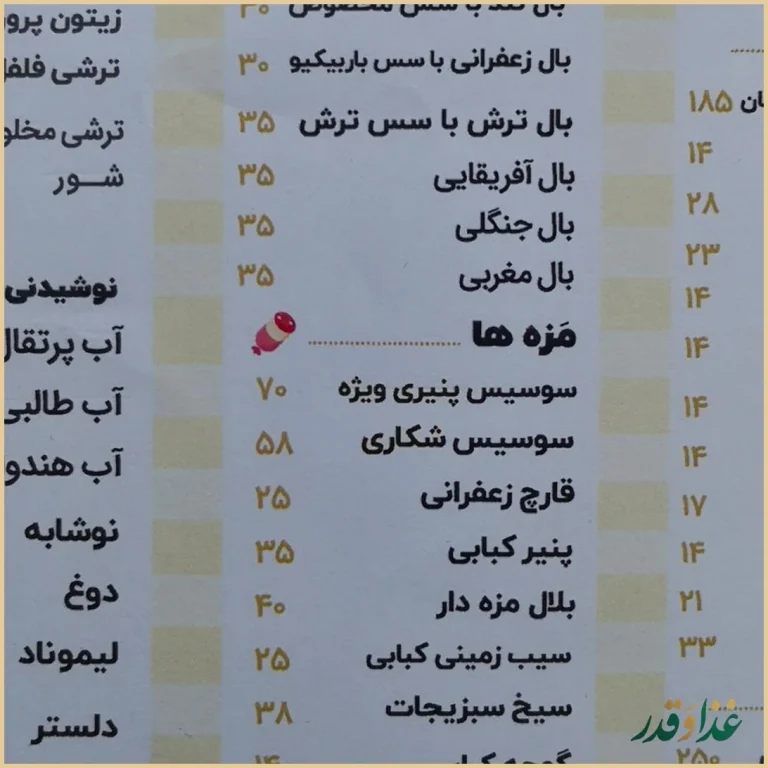 ۱۸۵
۱۴
۲۸
۲۳
۱۴
۱۴
۱۴
۱۴
۱۷
۱۴
۲۱
۳۳
۲۵۰
بال تند با سس مخصوص ۳۰
بال زعفرانی با سس باربیکیو ۳۰
بال ترش با سس ترش ۳۵
بال آفریقایی ۳۵
بال جنگلی ۳۵
بال مغربی ۳۵
مَزه ها
سوسیس پنیری ویژه ۷۰
سوسیس شکاری ۵۸
قارچ زعفرانی ۲۵
پنیر کبابی ۳۵
بلال مزه دار ۴۰
سیب زمینی کبابی ۲۵
سیخ سبزیجات ۳۸
زیتون
ترشی
ترشی
شــور
نوشیدنی
آب پرتقال
آب طالبی
آب
نوشابه
دوغ
لیموناد
دلستر
غذا و قدر